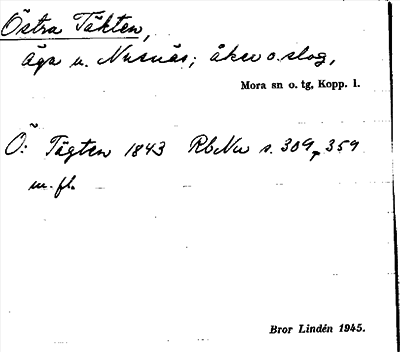 Östra Täkten,
Äga u. Nusnäs; åker o. slog,
Mora sn o. tg, Kopp. l.
Ö: Tägten 1843 RbNu s. 309, 359
m. fl.
Bror Lindén 1945.